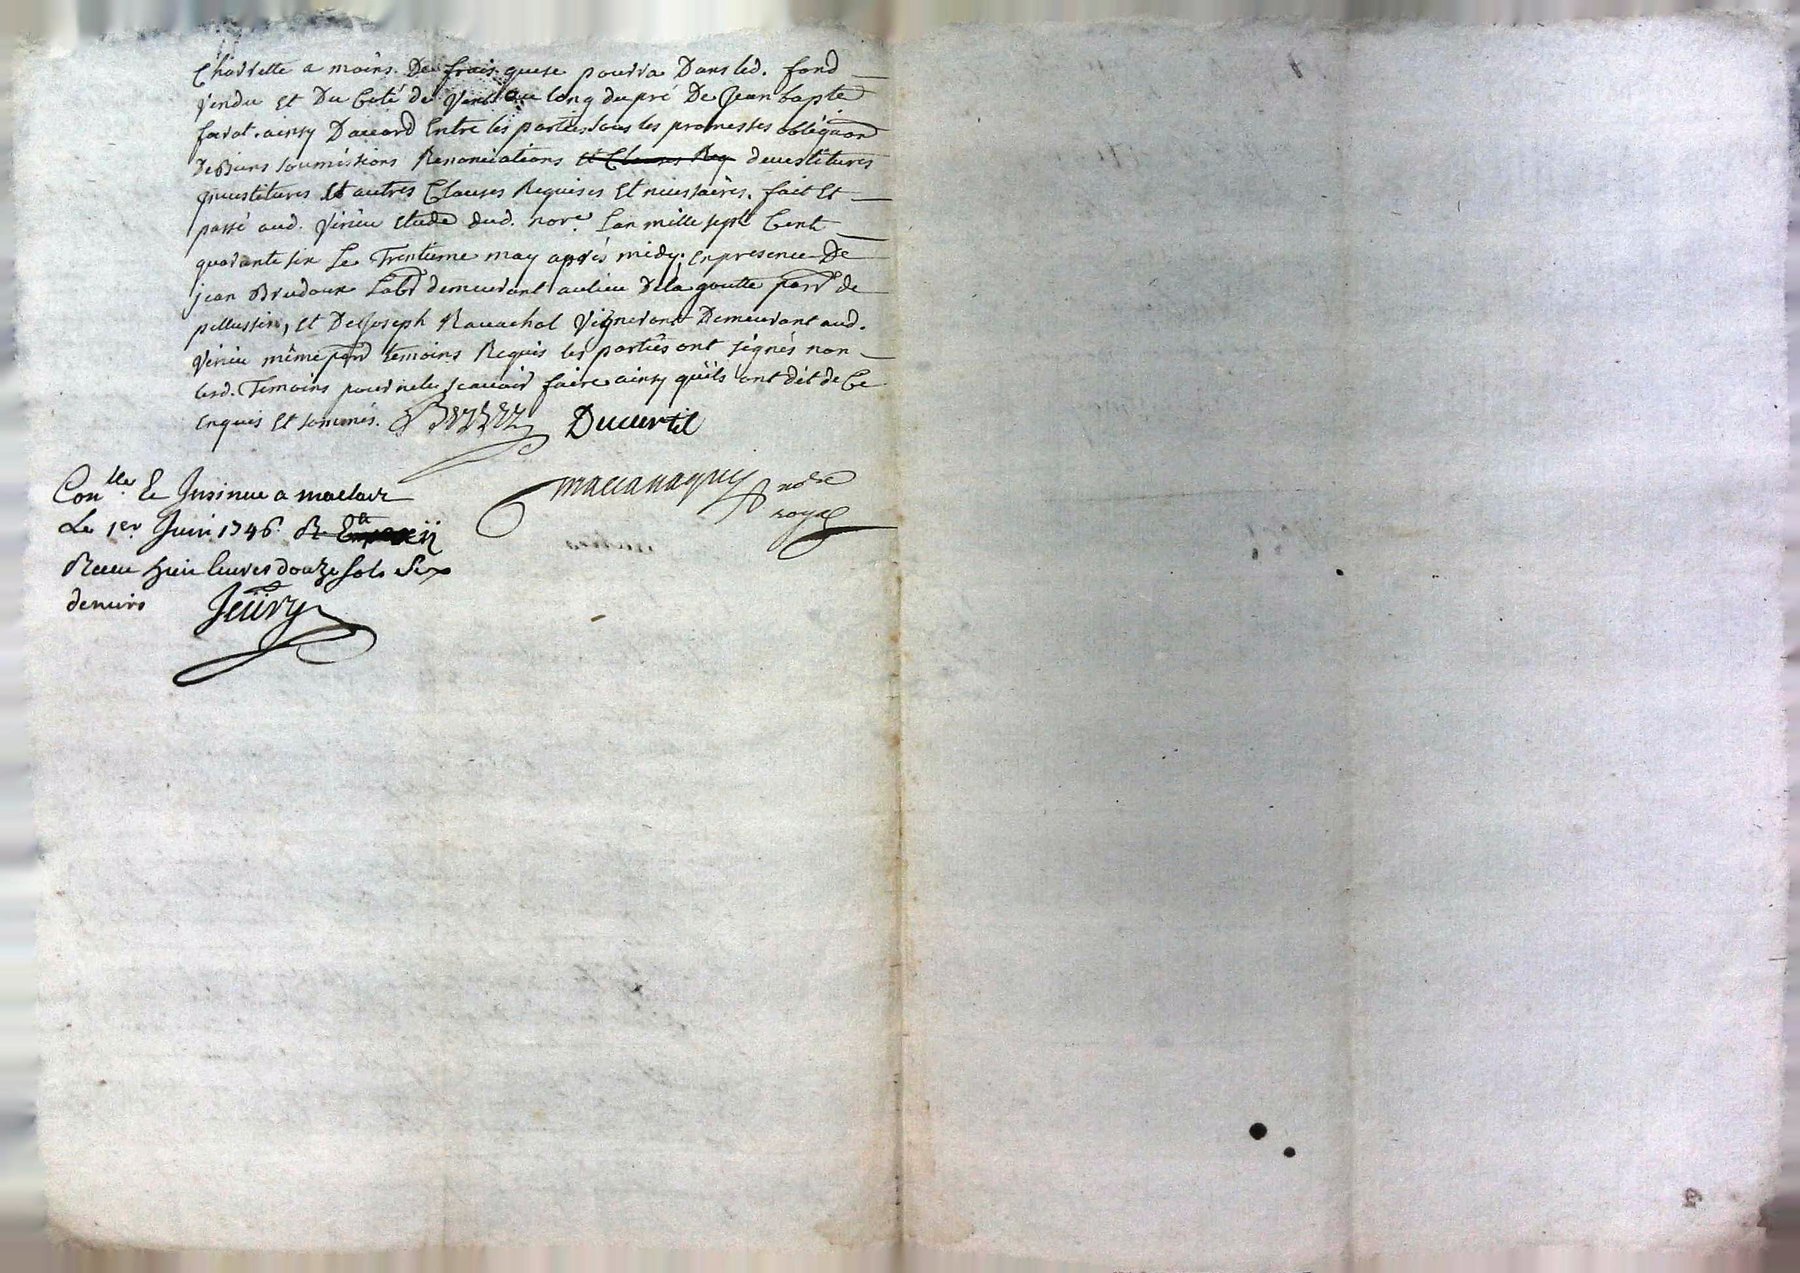 Charrette a moins De frais quese pourra Dans led. fond
vendu et Du Coté de vent au long dupré De Jean bapte
favat. ainsy Daccord Entre les parties sous les promesses obligaon
De Biens soumissions Renonciations et Clauses Req devestitures
investitures et autres Clauses Requises et necessaires. fait et
passé aud. Virieu etude dud. nore. Lan mille sept Cent
quarante six Le Trentieme may apprés midy. en presence De
jean Brudoux Labr demeurant aulieu Dela goutte parr de
pellussin, et De Joseph Ravachol Vigneront Demeurant aud.
Virieu même parr temoins Requis les parties ont signés non
lesd. Temoins pour ne le scavoir faire ainsy quils ont dit de Ce
enquis et sommés. Ducurtil
Conlle. Et Insinue a maclair
Le 1er. Juin 1746. R
Receu huit livres douze sols six
deniers
nore
royal